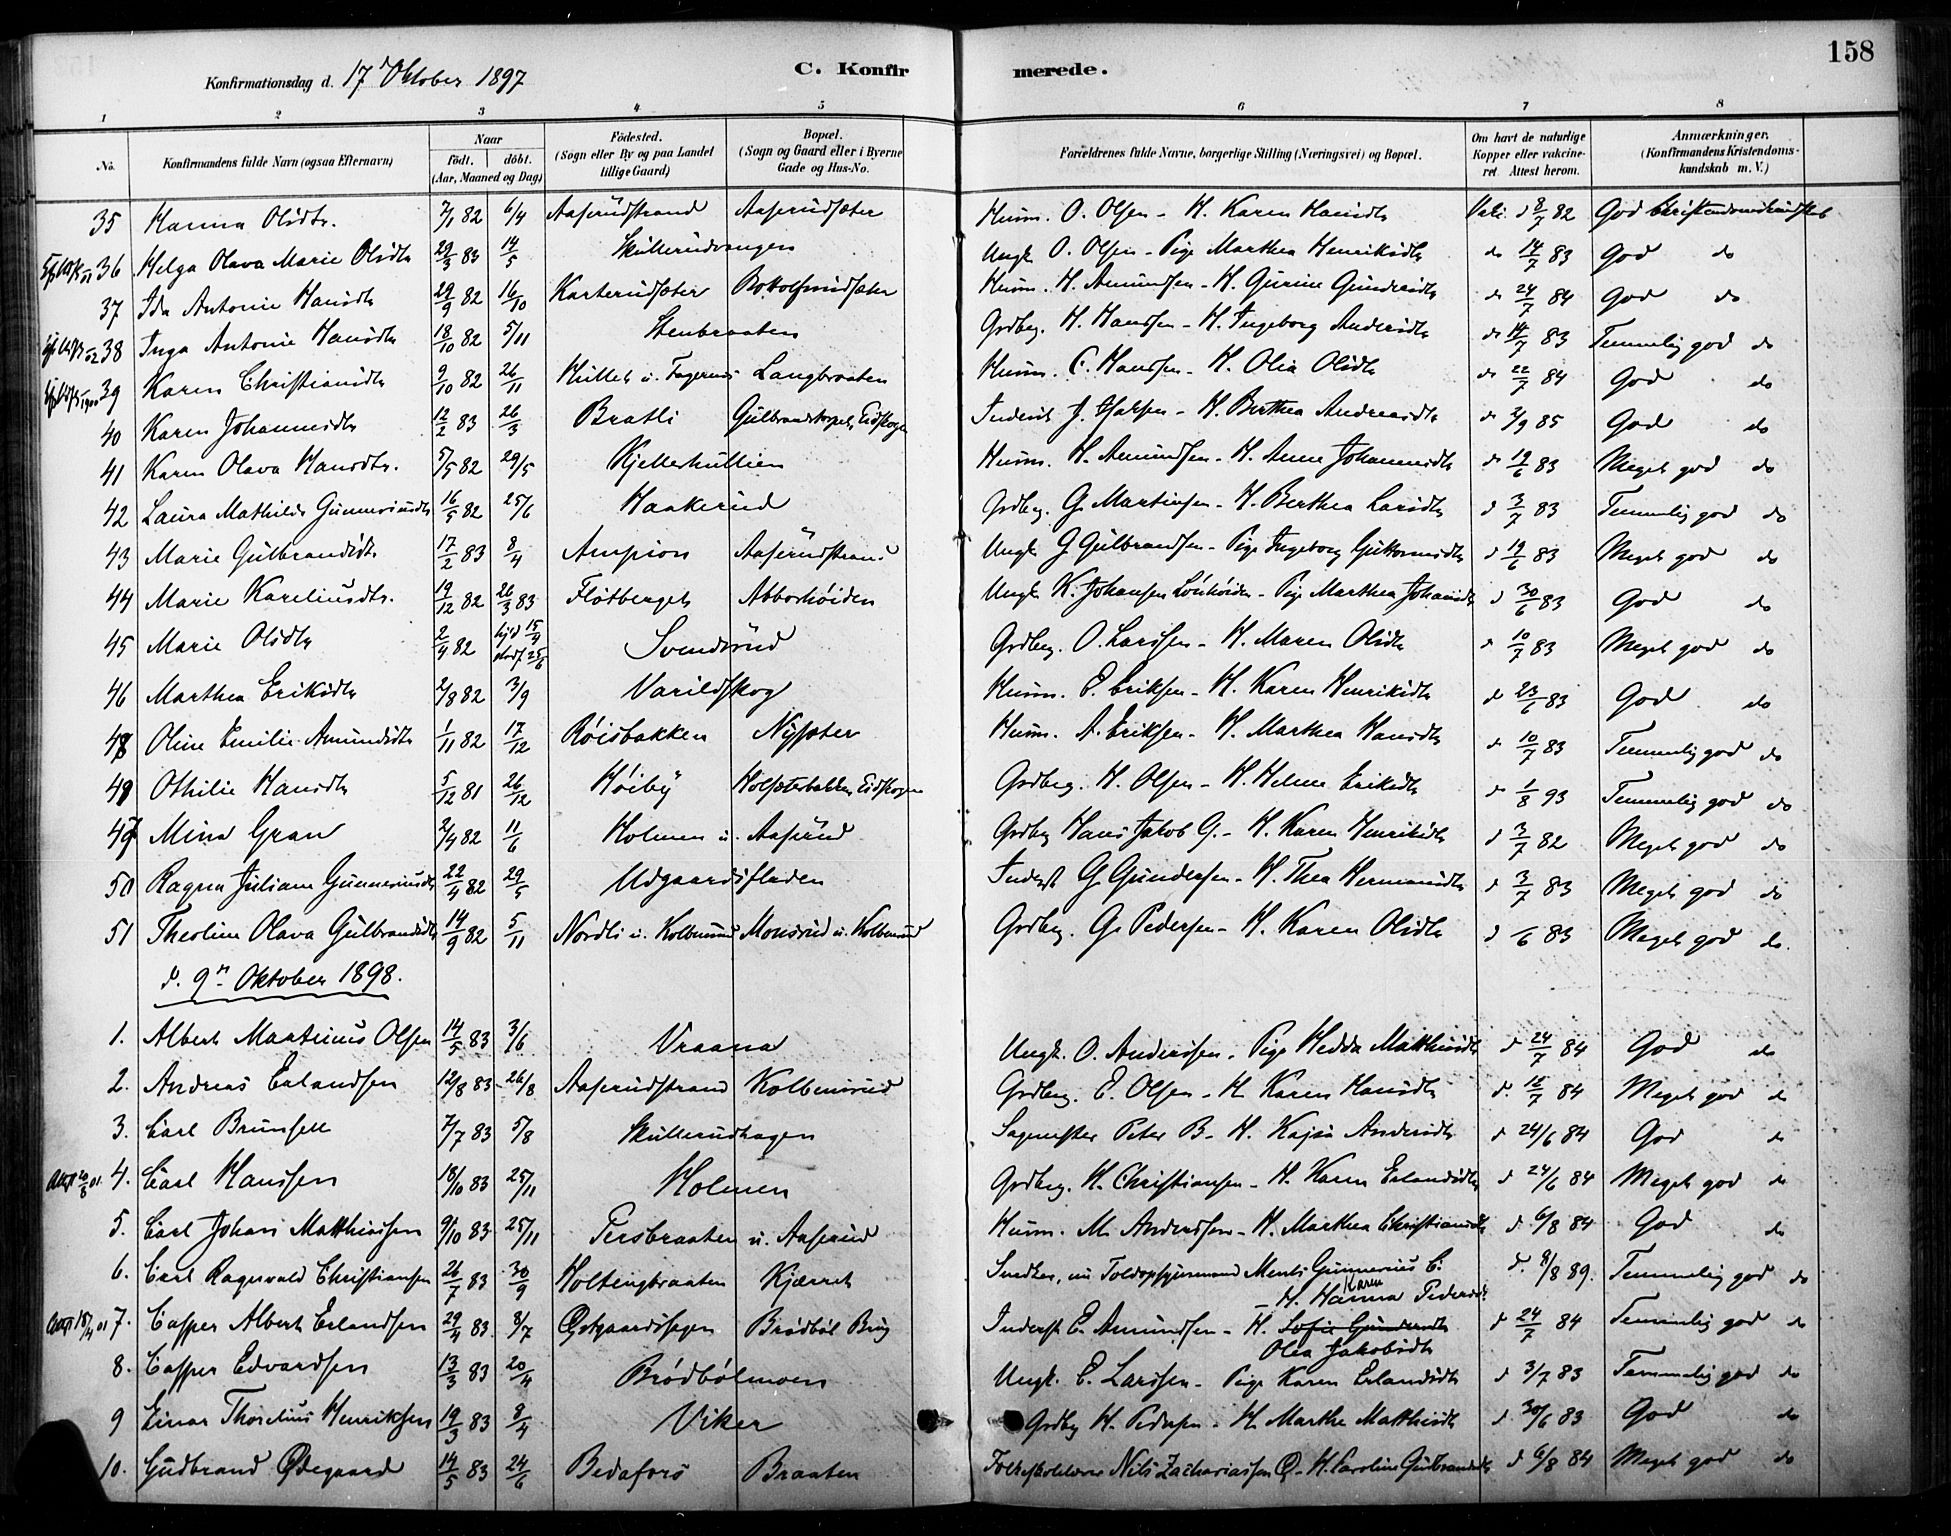 158
Konfirmationsdag d. 17 Oktober 1897 C. Konfirmerede.
1 2 3 4 5 6 7 8
No. Konfirmandens fulde Navn (ogsaa Efternavn) Naar født. døbt. (Aar, Maaned og Dag) Fødested. (Sogn eller By og paa Landet tillige Gaard) Bopæl. (Sogn og Gaard eller i Byerne Gade og Hus-No. Forældrenes fulde Navne, borgerlige Stilling (Næringsvei) og Bopæl. Om havt de naturlige Kopper eller vakcineret. Attest herom. Anmærkninger. (Konfirmandens Kristendomskundskab m. V.)
35 Hanna Olsdtr. 7/1 82 6/4 Aaserudstrand Aaserudsæter Husm. O. Olsen - H. Karen Hansdtr Vakc. d 8/7 82 God Christendomskundskab
36 Helga Olava Marie Olsdtr 29/3 83 14/5 Skullerudvangen Ungk. O. Olsen - Pige Marthea Henriksdtr do 14/7 83 God do
37 Ida Antonie Hansdtr 29/9 82 16/10 Karterudsæter Husm. H. Amundsen - H. Gurine Gundersdtr do 24/7 84 God do
38 Inga Antonie Hansdtr 18/10 82 5/11 Stenbraaten Grdbrg. H. Hanssen - H. Ingeborg Andersdtr do 14/7 83 Temmelig god do
39 Karen Christiansdtr 9/10 82 26/11 Hullet u. Fagernes Langbraaten Husm. C. Hanssen - H. Olia Olsdtr do 22/7 84 God do
40 Karen Johannesdtr 12/2 83 26/3 Bratli Gulbrandstorpet, Eidskogen Inderst J. - H. Berthea Andreasdtr d 2/9 85 God do
41 Karen Olava Hansdtr. 5/5 82 29/5 Kjellerhullien Husm. H. Amundsen - H. Anne Johannesdtr d 19/6 83 Meget god do
42 Laura Mathilde Gunneriusdtr 16/5 82 25/6 Haakerud Grdbrg. G. Martinsen - H. Berthea Larsdtr d 3/7 83 Temmelig god do
43 Marie Gulbrandsdtr 17/2 83 8/4 Ampion Aaserudstrand Ungk G Gulbrandsen - Pige Ingeborg Guttormsdtr d 19/6 83 Meget god do
44 Marie Kareliusdtr. 19/12 82 26/3 83 Fløtberget Abborhøiden Ungk K. Johansen Lønhøiden - Pige Marthea Johansdtr d 30/6 83 God do
45 Marie Olsdtr 2/4 82 hjd 15/4 stadf 25/6 Svendsrud Grdbrg. O. Larssen - H. Maren Olsdtr d 10/7 83 Meget god do
46 Marthea Eriksdtr 2/8 82 3/9 Varildskog Husm. E. Eriksen - H. Karen Henriksdtr d 23/6 83 God do
48 Oline Emilie Amundsdtr 1/11 82 17/12 Røisbakken Nysæter Husm. A. Eriksen - H. Marthea Hansdtr d 10/7 83 Temmelig god do
49 Othilie Hansdtr 5/12 81 26/12 Høiby Holsæterbakken, Eidskogen Grdbrg. H. Olsen - H. Helene Eriksdtr d 1/8 93 Temmelig god do
47 Mina Gran 2/4 82 11/6 Holmen u. Aaserud Grdbrg Hans Jakob G. - H. Karen Henriksdtr d 3/7 82 Meget god do
50 Ragna Juliane Gunneriusdtr 22/4 82 29/5 Udgaardsfladen Inderst G Gundersen - H. Thea Hermansdtr d 3/7 83 Meget god do
51 Theoline Olava Gulbrandsdtr 14/9 82 5/11 Nordli u. Kolbensrud Monsrud u. Kolbensrud Grdbrg. G. Pedersen - H. Karen Olsdtr d /6 83 Meget god do.
d. 9de Oktober 1898.
1. Albert Martinius Olsen 14/5 83 3/6 Vraana Ungk. O. Anderssen - Pige Hedda Matthisdtr d 24/7 84 God do
2. Andreas Erlandsen 12/8 83 26/8 Aaserudstrand Kolbensrud Grdbrg. E. Olsen - H. Karen Hansdtr d. 16/7 84 Meget god do
3. Carl Brunsell 7/7 83 5/8 Skullerudhagen Sagmester Peter B - H. Kajsa Andersdtr d 24/6 84 God do
4. Carl Hanssen 18/10 83 25/11 Holmen Grdbrg. H. Christiansen - H. Karen Erlandsdtr d 24/6 84 Meget god do
5. Carl Johan Matthissen 9/10 83 25/11 Persbraaten u. Aaserud Husm. M. Anderssen - H. Marthea Christiansdtr d 6/8 84 God do
6. Carl Ragnvald Christiansen 26/7 83 30/9 Holtingbraaten Kjærret Snedker, nu Toldopsynsmand Ments Gunnerius C. - H. Hanna Karen Pedersdtr d. 8/8 89. Temmelig god do
7. Casper Albert Erlandsen 29/4 83 8/7 Østgaardseger Brødbøl Brug Inderst E. Amundsen - H. Sofie Gundersdtr Olea Jakobsdtr d 24/7 84 Temmelig god do
8. Casper Edvardsen 13/3 83 20/4 Brødbølmoen Ungk. E. Larssen - Pige Karen Erlandsdtr d 3/7 83 Temmelig god do
9 Einar Thorelius Henriksen 19/3 83 8/4 Viker Grdbrg H. Pedersen - H. Marthe Matthisdtr d. 30/6 83 God do
10. Gudbrand Ødegaard 14/5 83 24/6 Bedafors Braaten Folkeskolelærer Nils Zachariassen Ø - H. Caroline Gulbrandsdtr d 6/8 84 Meget god do